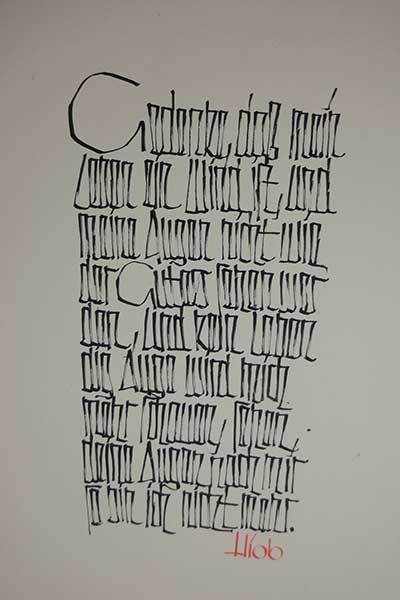 Gedenke, daß mein
Leben ein Wind ist, und
meine Augen nicht wie
der Gutes sehen wer
den, Und kein leben
dig Auge wird mich
mehr schauen, sehen
deine Augen nach mir
so bin ich nicht mehr.
Hiob